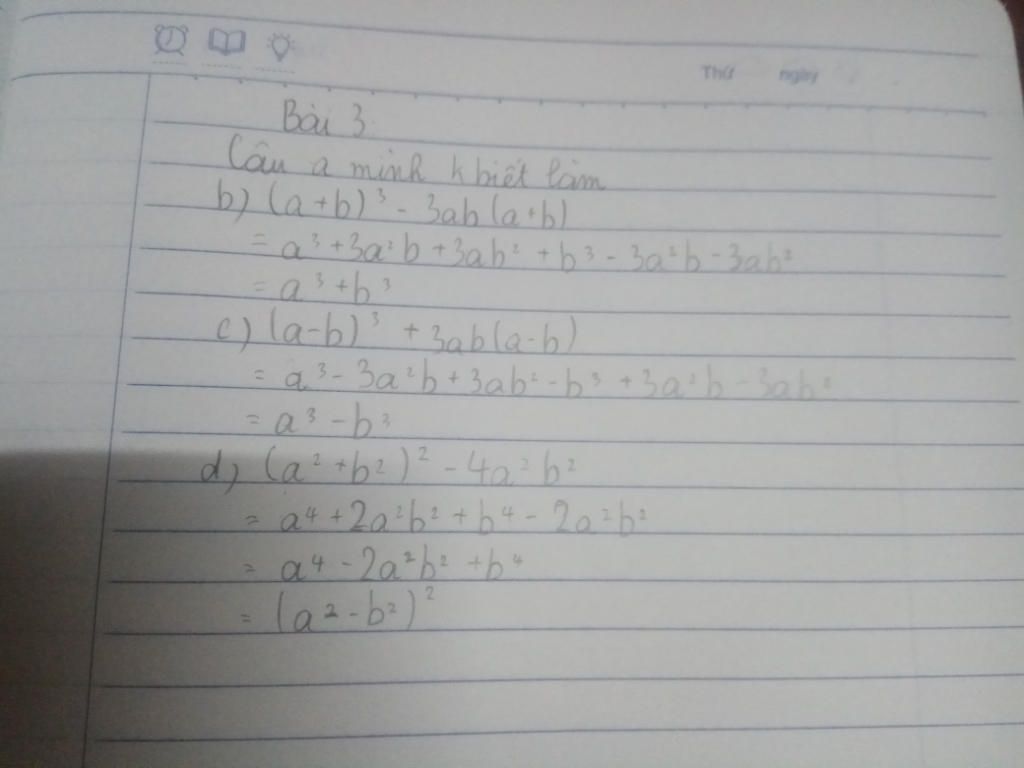 Thứ ngày
Bài 3
Câu a mình k biết làm
b) (a+b)³ - 3ab(a+b)
= a³ + 3a²b + 3ab² + b³ - 3a²b - 3ab²
= a³ + b³
c) (a-b)³ + 3ab(a-b)
= a³ - 3a²b + 3ab² - b³ + 3a²b - 3ab²
= a³ - b³
d) (a² + b²)² - 4a²b²
= a⁴ + 2a²b² + b⁴ - 2a²b²
= a⁴ - 2a²b² + b⁴
= (a² - b²)²